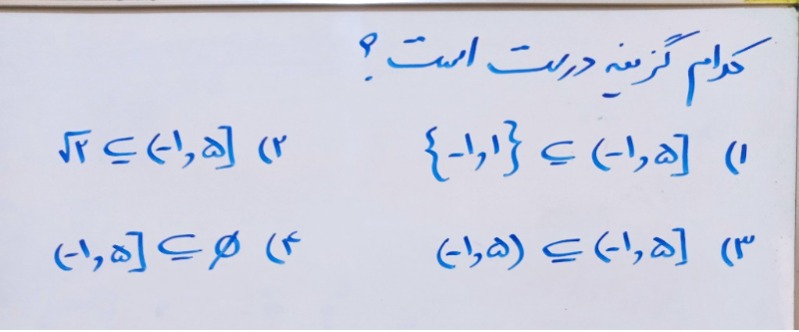 کدام گزینه درست است؟
۱) {-۱,۱} ⊆ (-۱,۵] ۲) √۲ ⊆ (-۱,۵]
۳) (-۱,۵) ⊆ (-۱,۵] ۴) (-۱,۵] ⊆ ∅